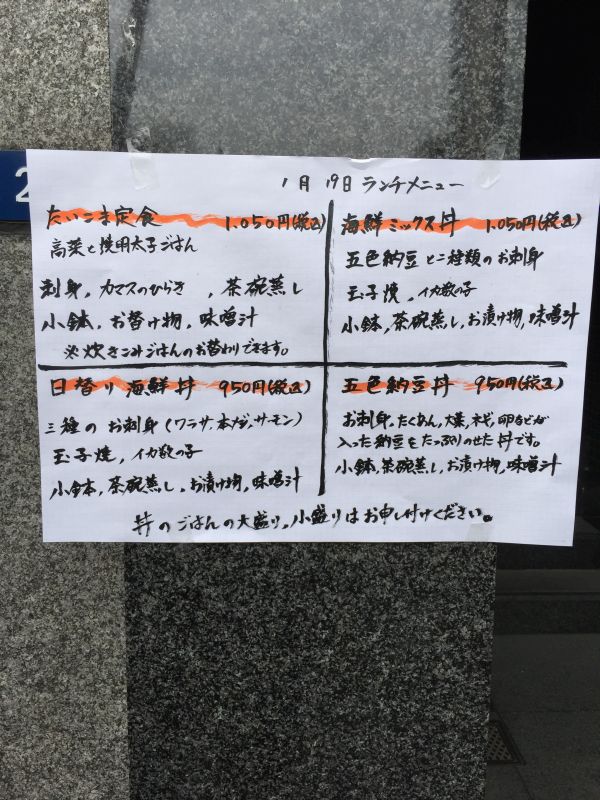 2
1月19日 ランチメニュー
たいこま定食 1.050円(税込)
高菜と焼明太子ごはん
刺身, カマスのひらき , 茶碗蒸し
小鉢, お替け物, 味噌汁
※炊きこみごはんのお替わりできます。
海鮮ミックス丼 1.050円(税込)
五色納豆と二種類のお刺身
玉子焼, イカ数の子
小鉢, 茶碗蒸し, お漬け物, 味噌汁
日替り海鮮丼 950円(税込)
三種のお刺身(ワラサ, 本ダイ, サーモン)
玉子焼, イカ数の子
小鉢, 茶碗蒸し, お漬け物, 味噌汁
五色納豆丼 950円(税込)
お刺身, たくあん, 大葉, ネギ, 卵などが
入った納豆をたっぷりのせた丼です。
小鉢, 茶碗蒸し, お漬け物, 味噌汁
丼のごはんの大盛り, 小盛りはお申し付けください。